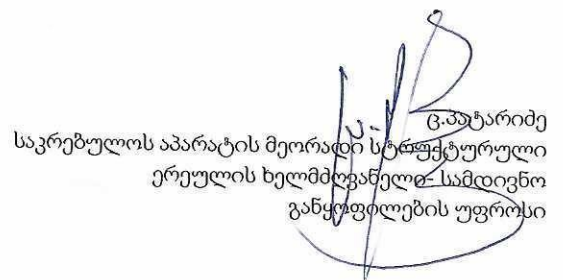 ც.პატარიძე
საკრებულოს აპარატის მეორადი სტრუქტურული
ერეულის ხელმძღვანელი- სამდივნო
განყოფილების უფროსი